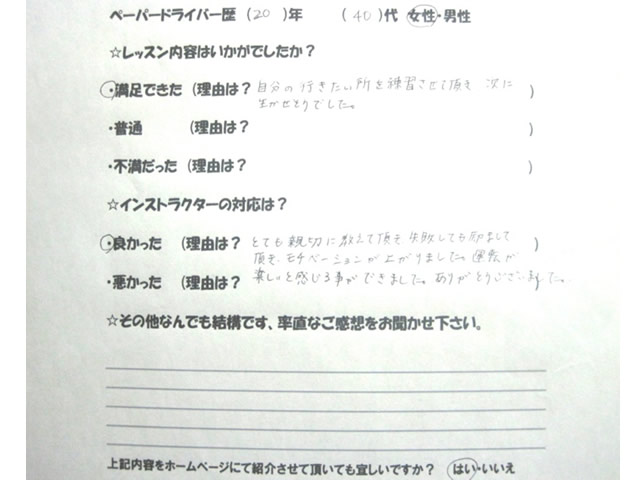 ペーパードライバー歴 (20)年 (40)代 女性・男性
☆レッスン内容はいかがでしたか？
・満足できた (理由は? 自分の行きたい所を練習させて頂き 次に )
生かせそうでした。
・普通 (理由は? )
・不満だった (理由は? )
☆インストラクターの対応は？
・良かった (理由は? とても親切に教えて頂き 失敗しても励まして )
頂き、モチベーションが上がりました。運転が
・悪かった (理由は? 楽しいと感じる事ができました。ありがとうございました。 )
☆その他なんでも結構です、率直なご感想をお聞かせ下さい。
上記内容をホームページにて紹介させて頂いても宜しいですか？ はい・いいえ